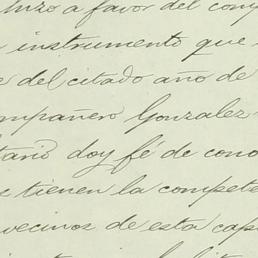 hizo a favor del comp
instrumento que
e del citado año de
ompañero Gonzalez
tario doy fé de cono
e tienen la compete
vecinos de esta cap